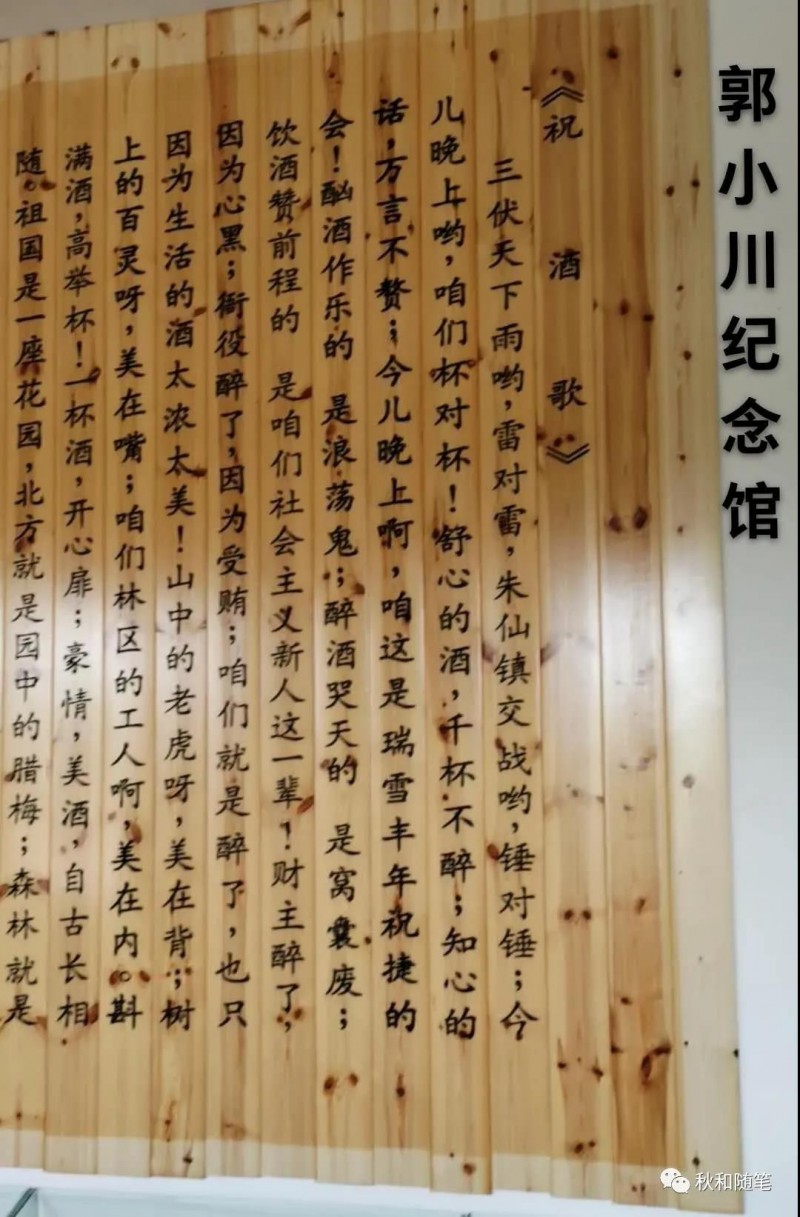 郭小川纪念馆
《祝酒歌》
三伏天下雨哟，雷对雷，朱仙镇交战哟，锤对锤；今
儿晚上哟，咱们杯对杯！舒心的酒，千杯不醉；知心的
话，万言不赘；今儿晚上啊，咱这是瑞雪丰年祝捷的
会！酗酒作乐的 是浪荡鬼；醉酒哭天的 是窝囊废；
饮酒赞前程的 是咱们社会主义新人这一辈！财主醉了，
因为心黑；衙役醉了，因为受贿；咱们就是醉了，也只
因为生活的酒太浓太美！山中的老虎呀，美在背；树
上的百灵呀，美在嘴；咱们林区的工人啊，美在内。斟
满酒，高举杯！一杯酒，开心扉；豪情，美酒，自古长相
随。祖国是一座花园，北方就是园中的腊梅；森林就是
秋和随笔